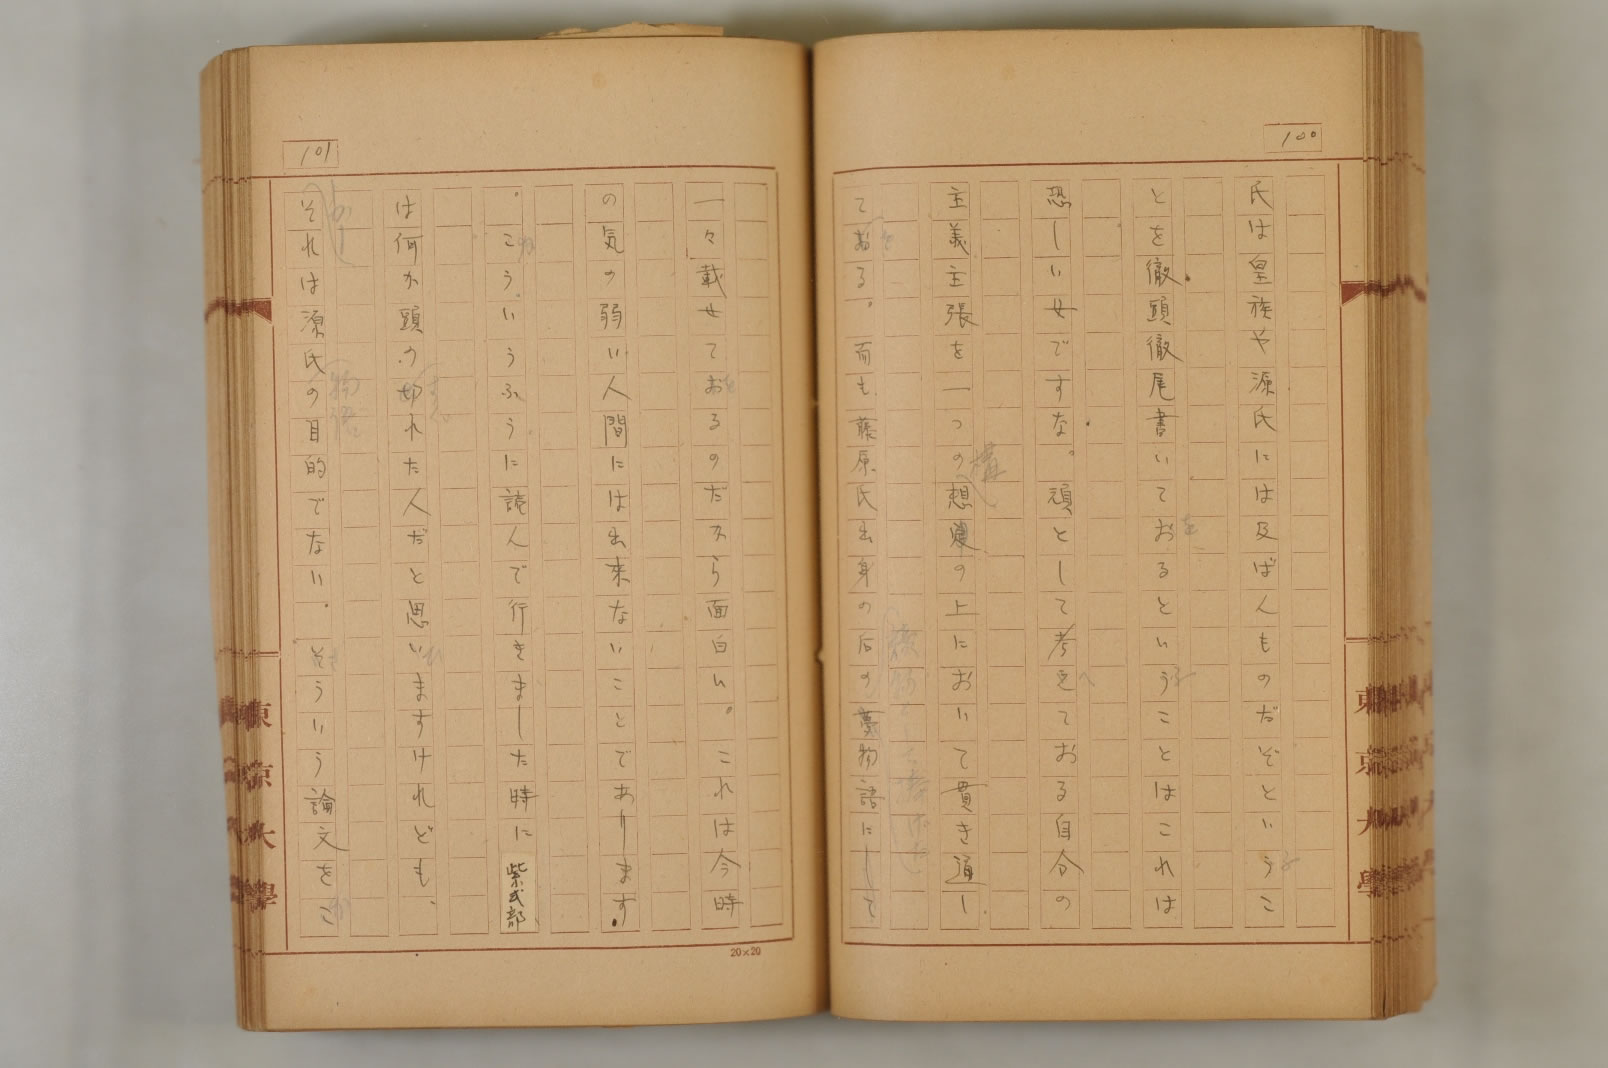 100
氏は皇族や源氏には及ばんものだぞといふうこ
とを徹頭徹尾書いてをおるといふうことはこれは
恐しい女ですな。頑として考へえておる自分の
主義主張を一つの構想の上において貫き通し
ておる。而も藤原氏出身の后の夢物語にして
101
一々載せておをるのだから面白い。これは今時
の気の弱い人間には出来ないことであります
。こういうふうに読んで行きました時に紫式部
は何か頭の切れた人だと思いひますけれども、
それは源氏物語の目的でない。そういう論文をこ
20×20
東京大學
東京大學